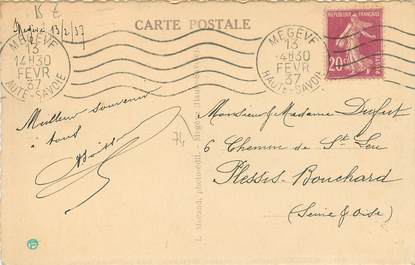 CARTE POSTALE
Megève 13/2/37
MEGEVE
13
14H30
FEVR
37
HAUTE-SAVOIE
MEGEVE
13
14H30
FEVR
37
HAUTE-SAVOIE
REPUBLIQUE FRANCAISE
20c
POSTES
Meilleur souvenir
à tous
74
Monsieur & Madame
6 Chemin de St Leu
Plessis-Bouchard
(Seine & Oise)